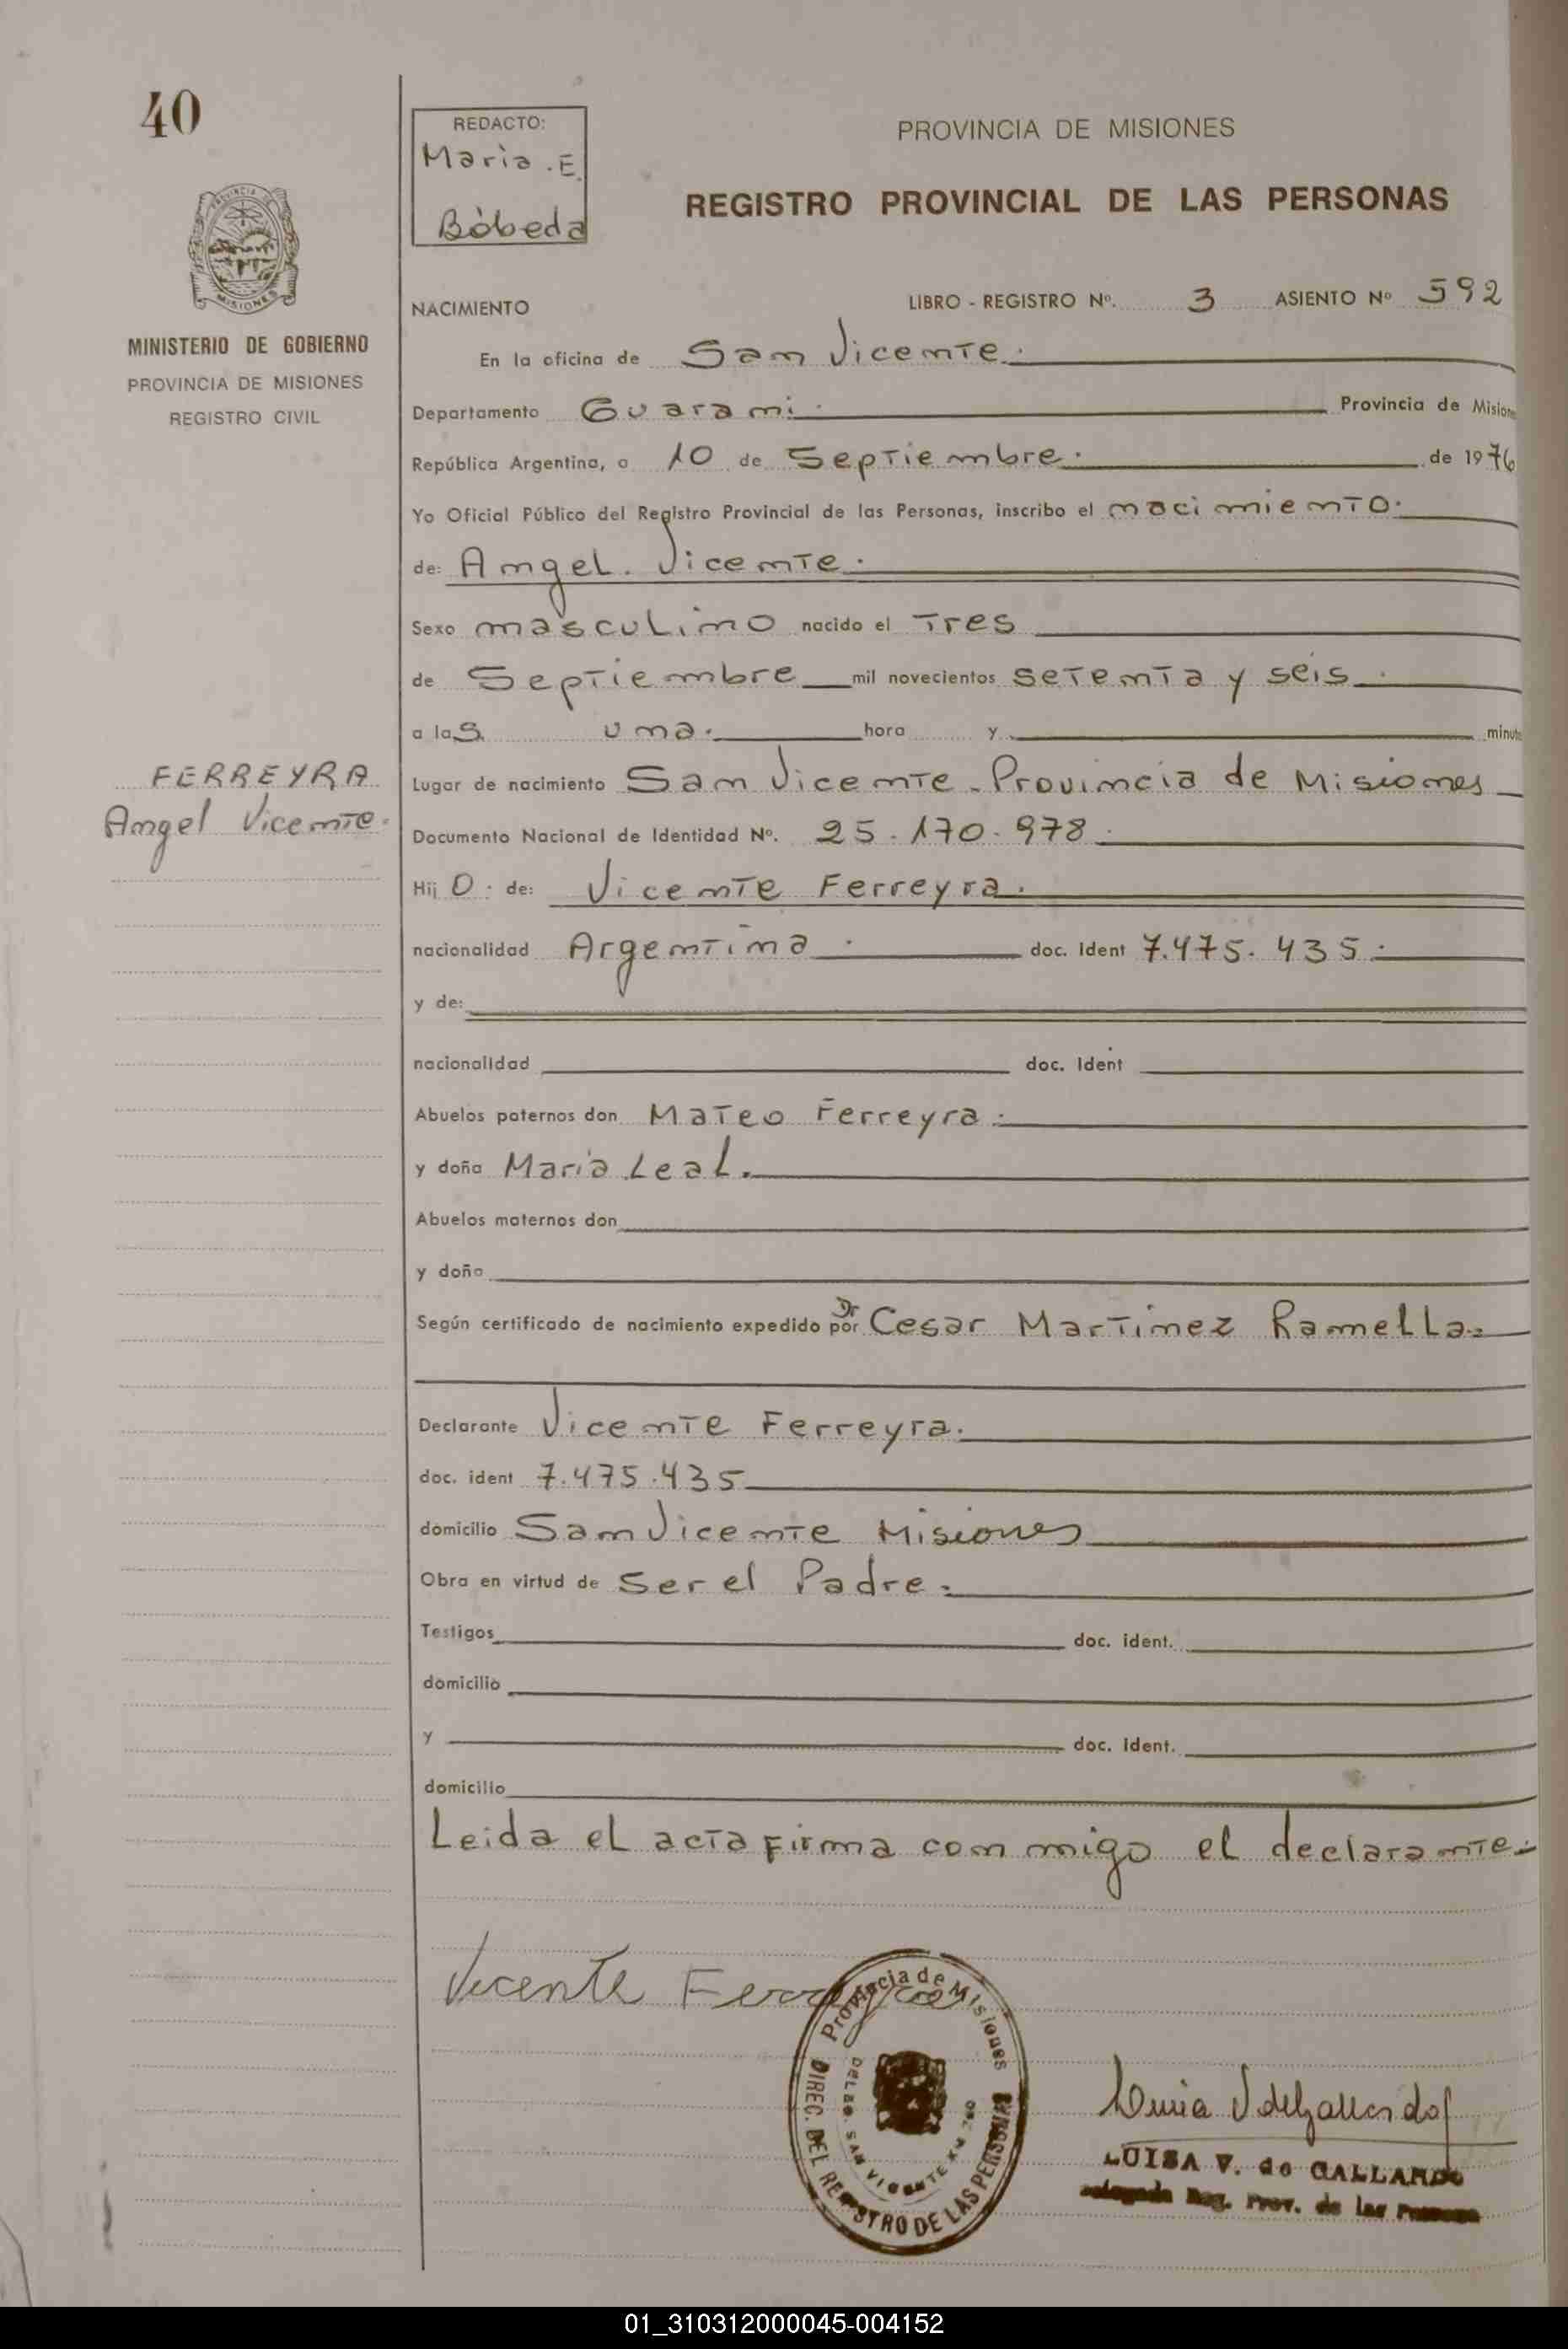 40
REDACTO:
Maria .E.
Bóbeda
PROVINCIA DE MISIONES
REGISTRO PROVINCIAL DE LAS PERSONAS
MISIONES
MINISTERIO DE GOBIERNO
PROVINCIA DE MISIONES
REGISTRO CIVIL
NACIMIENTO LIBRO - REGISTRO Nº. 3 ASIENTO Nº 592
En la oficina de San Vicente.
Departamento Guarani. Provincia de Misiones
República Argentina, a 10 de Septiembre. de 1976
Yo Oficial Público del Registro Provincial de las Personas, inscribo el nacimiento.
de: Angel. Vicente.
Sexo masculino nacido el Tres
de Septiembre mil novecientos setenta y seis.
a las una. hora y minutos
FERREYRA
Angel Vicente.
Lugar de nacimiento San Vicente - Provincia de Misiones
Documento Nacional de Identidad Nº. 25.170.978.
Hij O. de: Vicente Ferreyra.
nacionalidad Argentina. doc. Ident 7.475.435.
y de:
nacionalidad doc. Ident
Abuelos paternos don Mateo Ferreyra.
y doña Maria Leal.
Abuelos maternos don
y doña
Según certificado de nacimiento expedido por Dr Cesar Martinez Ramella.
Declarante Vicente Ferreyra.
doc. ident 7.475.435
domicilio San Vicente Misiones
Obra en virtud de ser el Padre.
Testigos doc. ident.
domicilio
y doc. ident.
domicilio
Leida el acta firma con migo el declarante.
Vicente Ferreyra
Provincia de Misiones
DIREC. DEL REGISTRO DE LAS PERSONAS
DELEG. SAN VICENTE
LUISA V. de GALLARDO
Delegada Reg. Prov. de las Personas
01_310312000045-004152